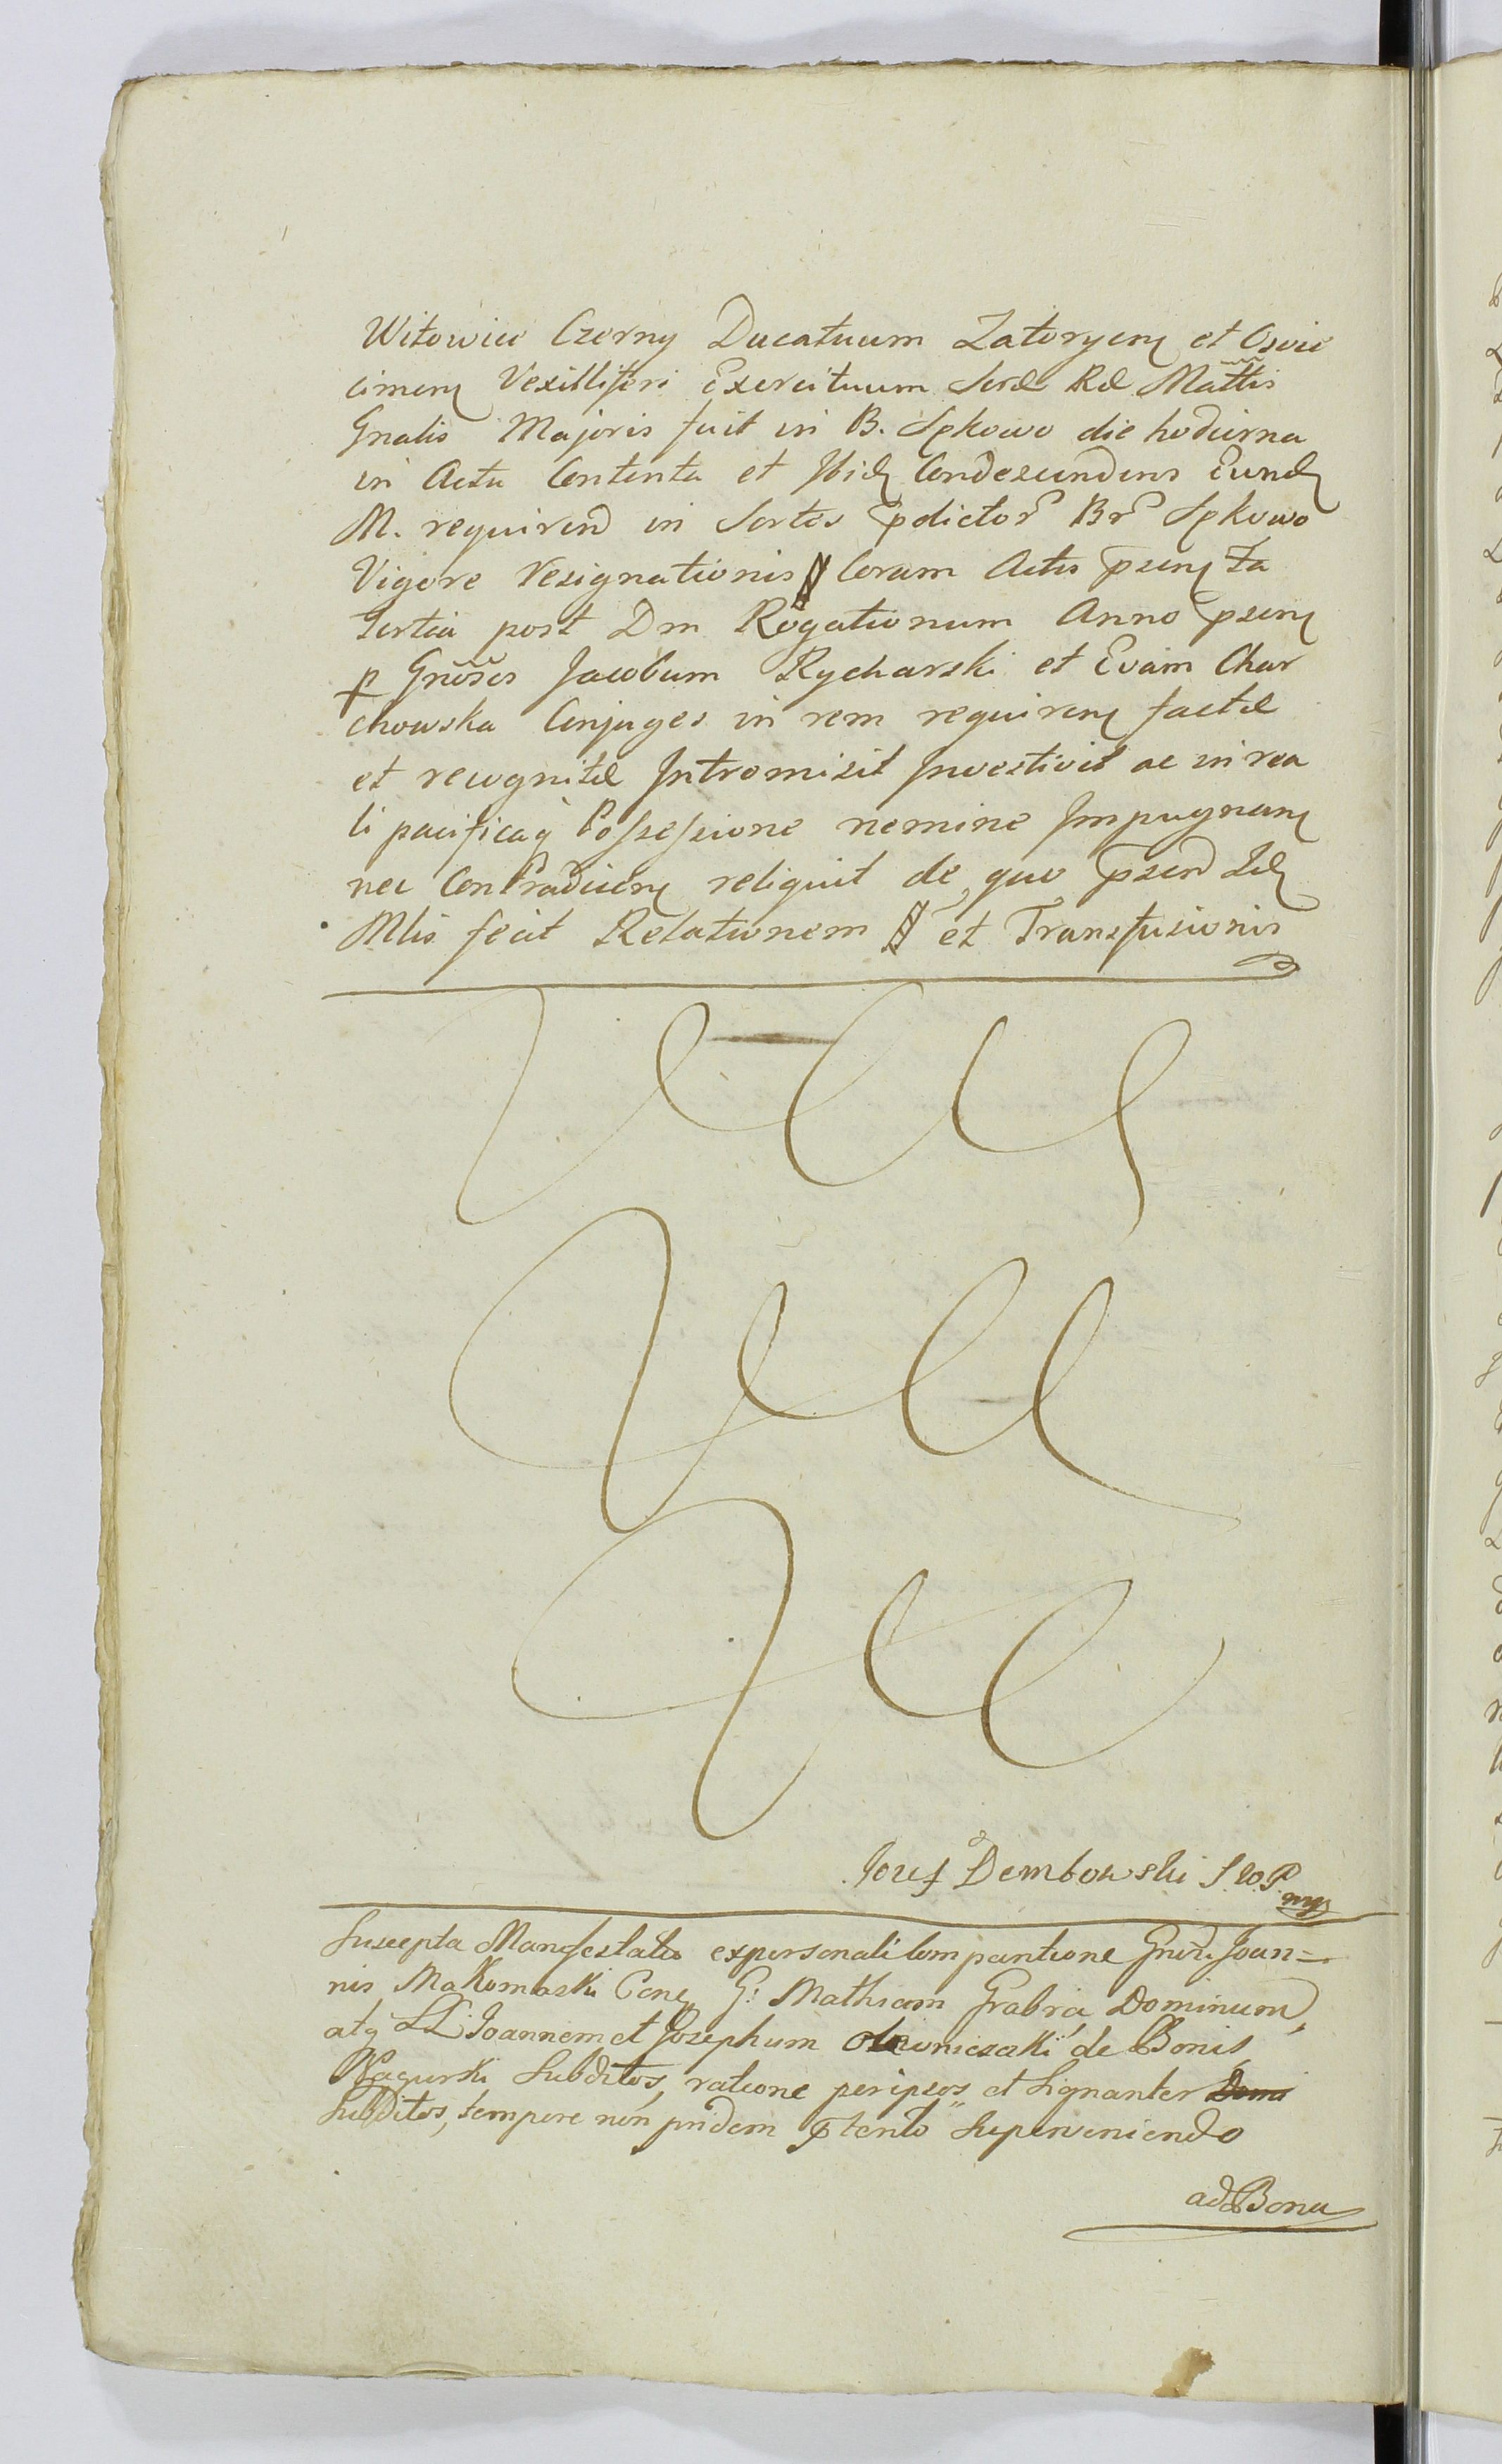 Witowice Czerny Ducatuum Zatoryen et Oswie
cimen Vexilliferi Exercituum Sere Re Mattis
Gnalis Majoris fuit in B. Sękowo die hodierna
in Actu Contenta et Ibid Condescendens Eund
M. requirend in Sortes pdictor Br Sękowo
Vigore Resignationis # Coram Actis psen Fa
Tertia post Dm Rogationum Anno psen
p Gnosos Jacobum Rycharski et Evam Char
chowska Conjuges in rem requiren factae
et recognitae Intromisit Investivit ac in rea
li pacificaq Possessione nemine Impugnan
nec Contradicen reliquit de quo psen Id
Mlis fecit Relationem # et Transfusionis
Jozef Dembowski S. W. P. mp
Suscepta Manifestatio ex personali Comparitione Gnor. Joan=
nis Makomaski Con G: Mathiam Grabia Dominum,
atq LL. Joannem et Josephum de Bonis
Nagurki Subditos, ratione per ipsos et Signanter
Subditos, tempore non pridem ptento Superveniendo
ad Bona